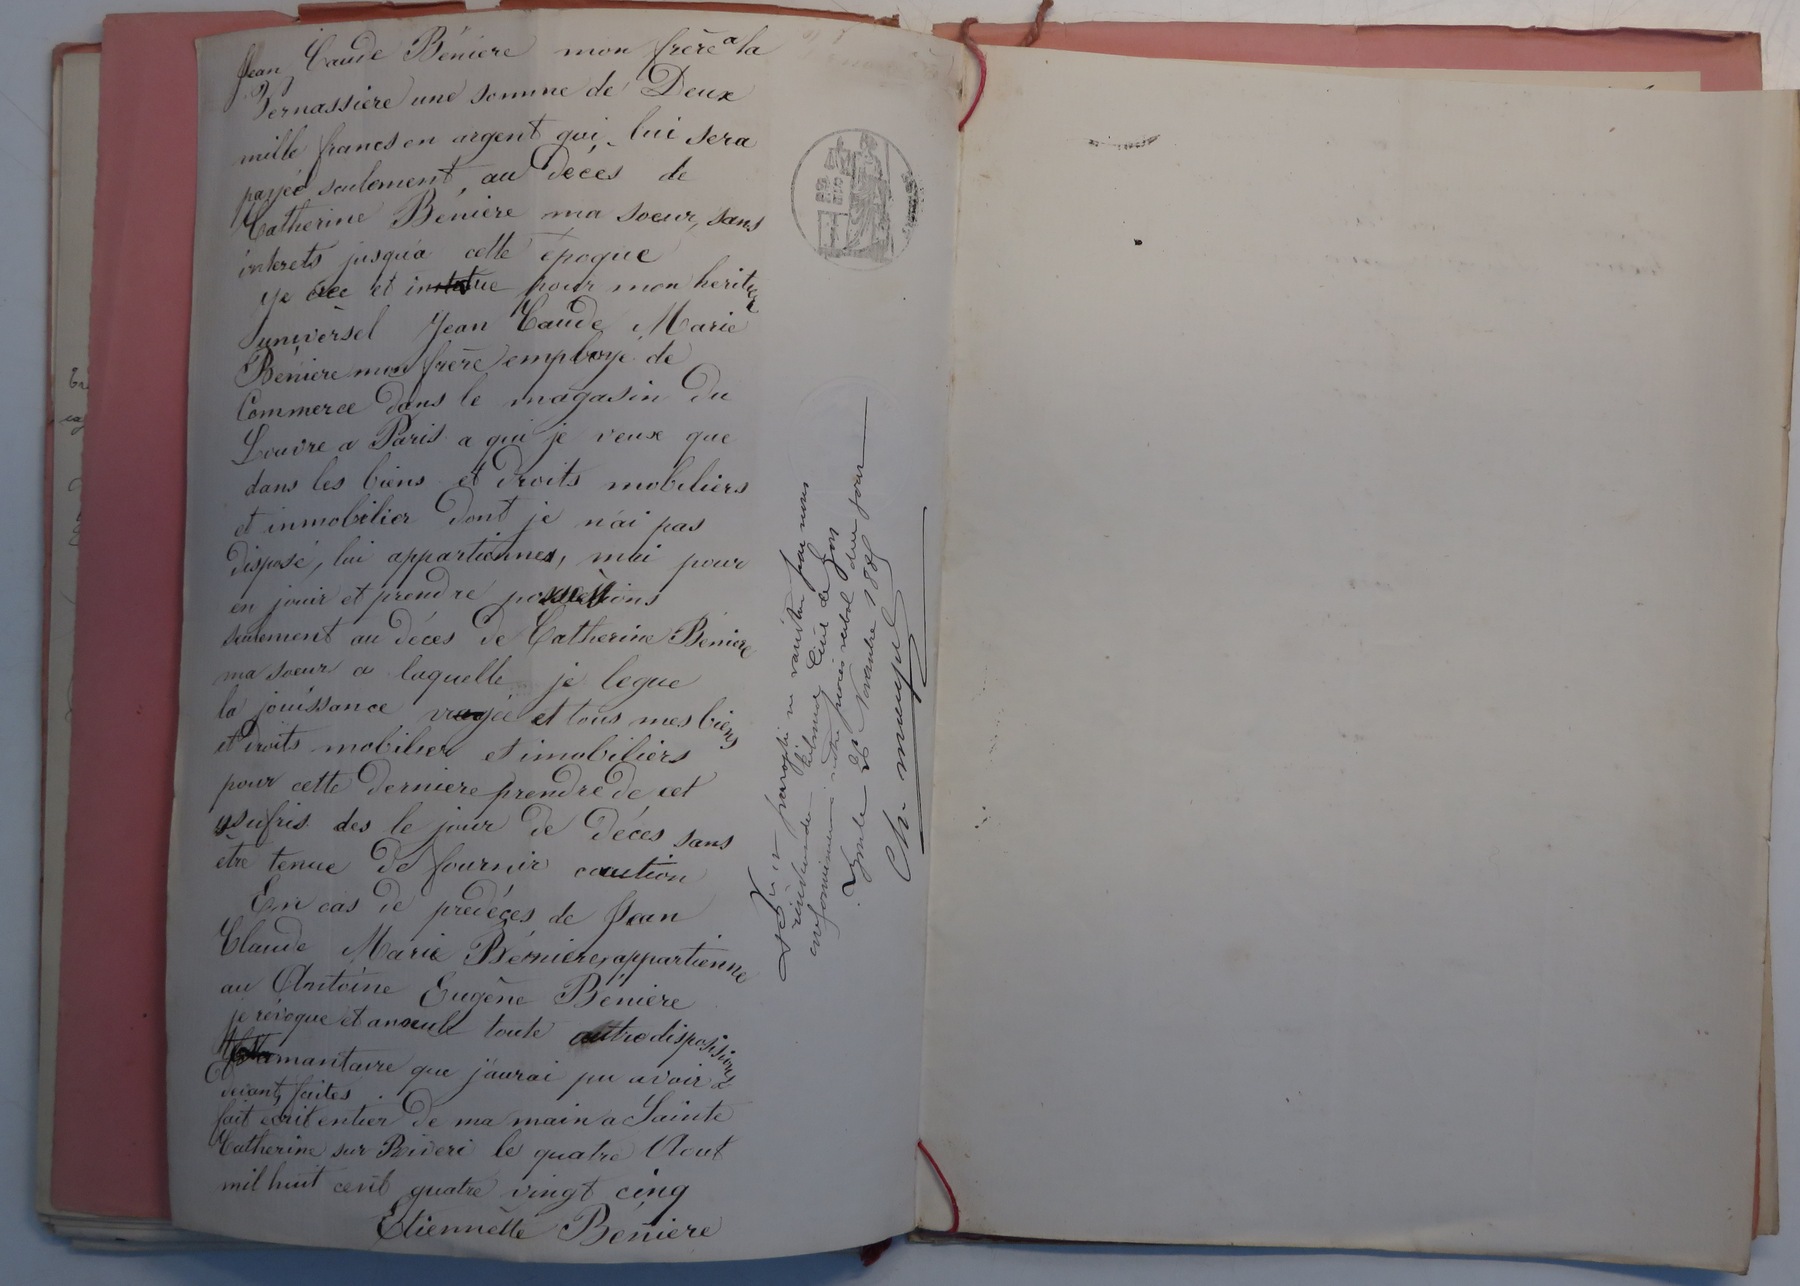 Jean Caude Bénière mon frère a la
Pernassière une somme de Deux
mille francs en argent qui, lui sera
payée seulement, au décès de
Catherine Bénière ma soeur, sans
interets jusqu'a cette époque
Je crée et institue pour mon heritier
universel Jean Claude Marie
Bénière mon frère employé de
Commerce dans le magasin du
Louvre a Paris a qui je veux que
dans les biens et droits mobiliers
et inmobilier dont je n'ai pas
disposé, lui appartiennes, mai pour
en jouir et prendre possessions
seulement au décès de Catherine Bénière
ma soeur a laquelle je legue
la jouissance et tous mes biens
et droits mobilier et imobiliers
pour cette derniere prendre de cet
usufris des le jour de décès sans
être tenue de fournir caution
En cas de predéçes, de Jean
Claude Marie Bénière, appartienne
au Antoine Eugène Bénière
je révoque et anoeulle toute autre disposisions
testamantaire que j'aurai pu avoir
devant faites
fait ecrit entier de ma main a Sainte
Catherine sur Riveri le quatre Aout
mil huit cent quatre vingt cinq
Etiennette Bénière
signé et paraphé ne varietur par nous
président du tribunal Civil de Lyon
conformément à notre procès verbal de ce jour
Lyon le 26 Novembre 188